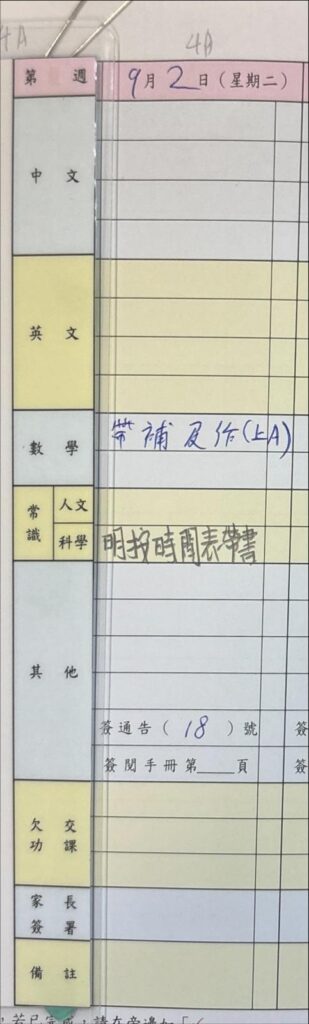 4A 4A
第 週 9月2日(星期二)
中 文
英 文
數 學 帶補及作(上A)
常識 人文
科學 明按時間表帶書
其 他
簽通告(18)號 簽
簽閱手冊第____頁 簽
欠 交
功 課
家 長
簽 署
備 註
,若已完成,請在旁邊加「✓